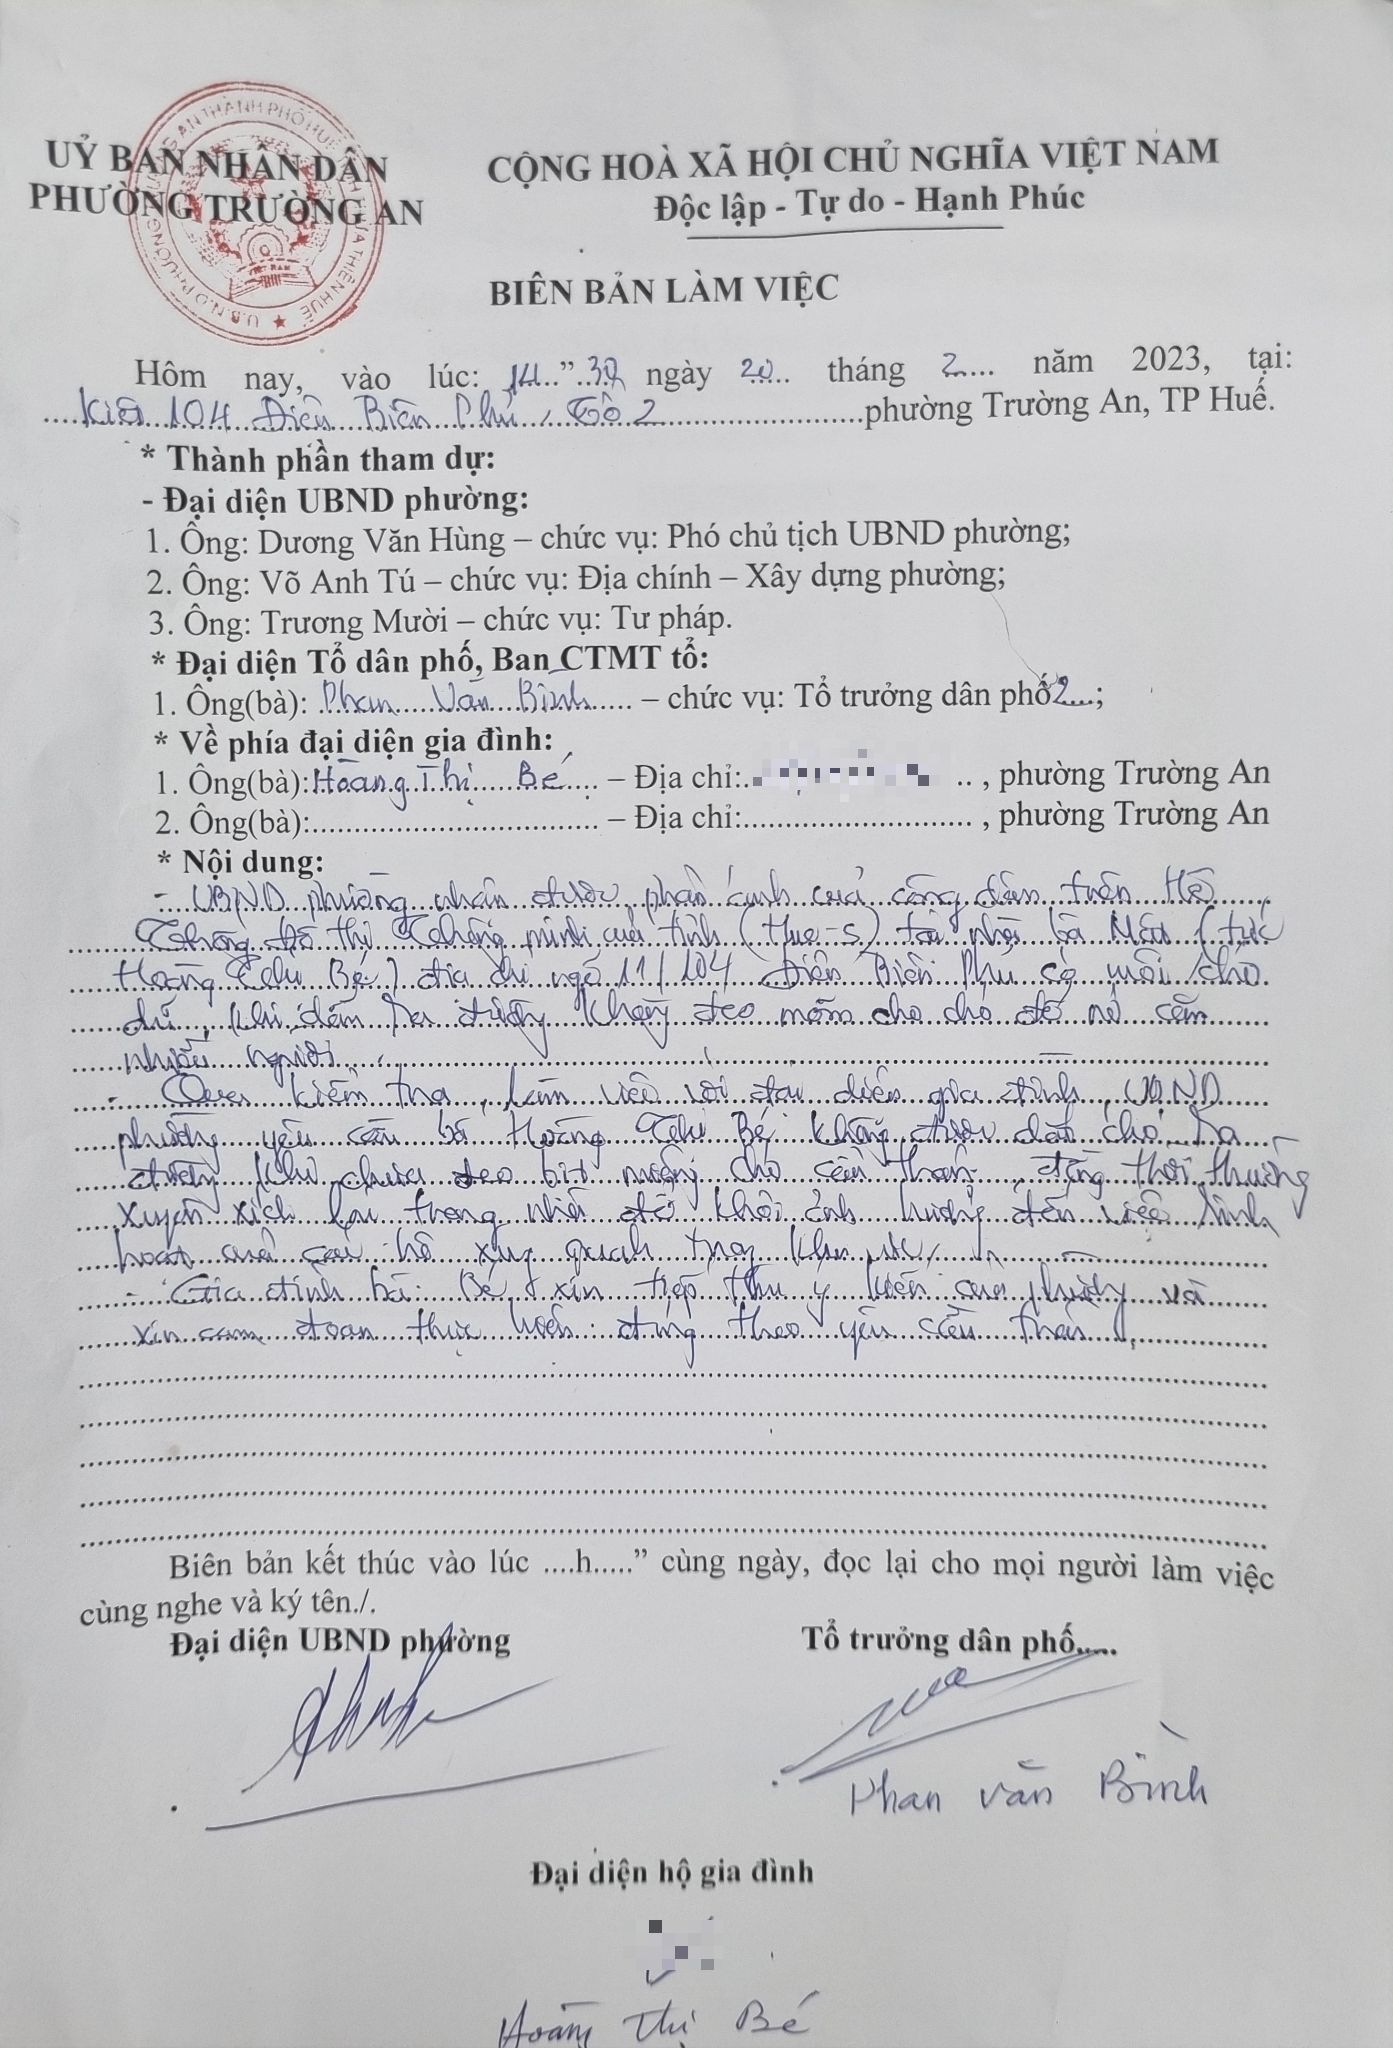 UỶ BAN NHÂN DÂN
PHƯỜNG TRƯỜNG AN
CỘNG HOÀ XÃ HỘI CHỦ NGHĨA VIỆT NAM
Độc lập - Tự do - Hạnh Phúc
BIÊN BẢN LÀM VIỆC
Hôm nay, vào lúc: 14..”.30 ngày 20.... tháng 2..... năm 2023, tại:
....Kiệt 104 Điện Biên Phủ, Tổ 2......................phường Trường An, TP Huế.
* Thành phần tham dự:
- Đại diện UBND phường:
1. Ông: Dương Văn Hùng – chức vụ: Phó chủ tịch UBND phường;
2. Ông: Võ Anh Tú – chức vụ: Địa chính – Xây dựng phường;
3. Ông: Trương Mười – chức vụ: Tư pháp.
* Đại diện Tổ dân phố, Ban CTMT tổ:
1. Ông(bà): Phan Văn Bình ..... – chức vụ: Tổ trưởng dân phố 2....;
* Về phía đại diện gia đình:
1. Ông(bà): Hoàng Thị Bé .... – Địa chỉ: .. , phường Trường An
2. Ông(bà):.................................. – Địa chỉ:........................... , phường Trường An
* Nội dung:
- UBND phường nhận được phản ánh của công dân trên Hệ
thống đô thị thông minh của tỉnh (Hue-S) tại nhà bà (tức
Hoàng Thị Bé) địa chỉ ngõ 11/104 Điện Biên Phủ có nuôi chó
dữ, khi dẫn ra đường không đeo mõm cho chó để nó cắn
nhiều người.
- Qua kiểm tra, làm việc với đại diện gia đình, UBND
phường yêu cầu bà Hoàng Thị Bé không được dắt chó ra
đường khi chưa đeo bịt miệng chó cẩn thận, đồng thời thường
xuyên xích lại trong nhà để khỏi ảnh hưởng đến việc sinh
hoạt của các hộ xung quanh trong khu vực.
- Gia đình bà Bé xin tiếp thu ý kiến của phường và
xin cam đoan thực hiện đúng theo yêu cầu trên.
Biên bản kết thúc vào lúc ....h.....” cùng ngày, đọc lại cho mọi người làm việc
cùng nghe và ký tên./.
Đại diện UBND phường
Tổ trưởng dân phố.....
Phan Văn Bình
Đại diện hộ gia đình
Hoàng Thị Bé